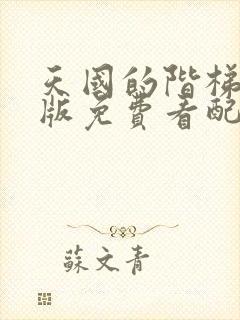 天國的階梯
版免費看配
蘇文青